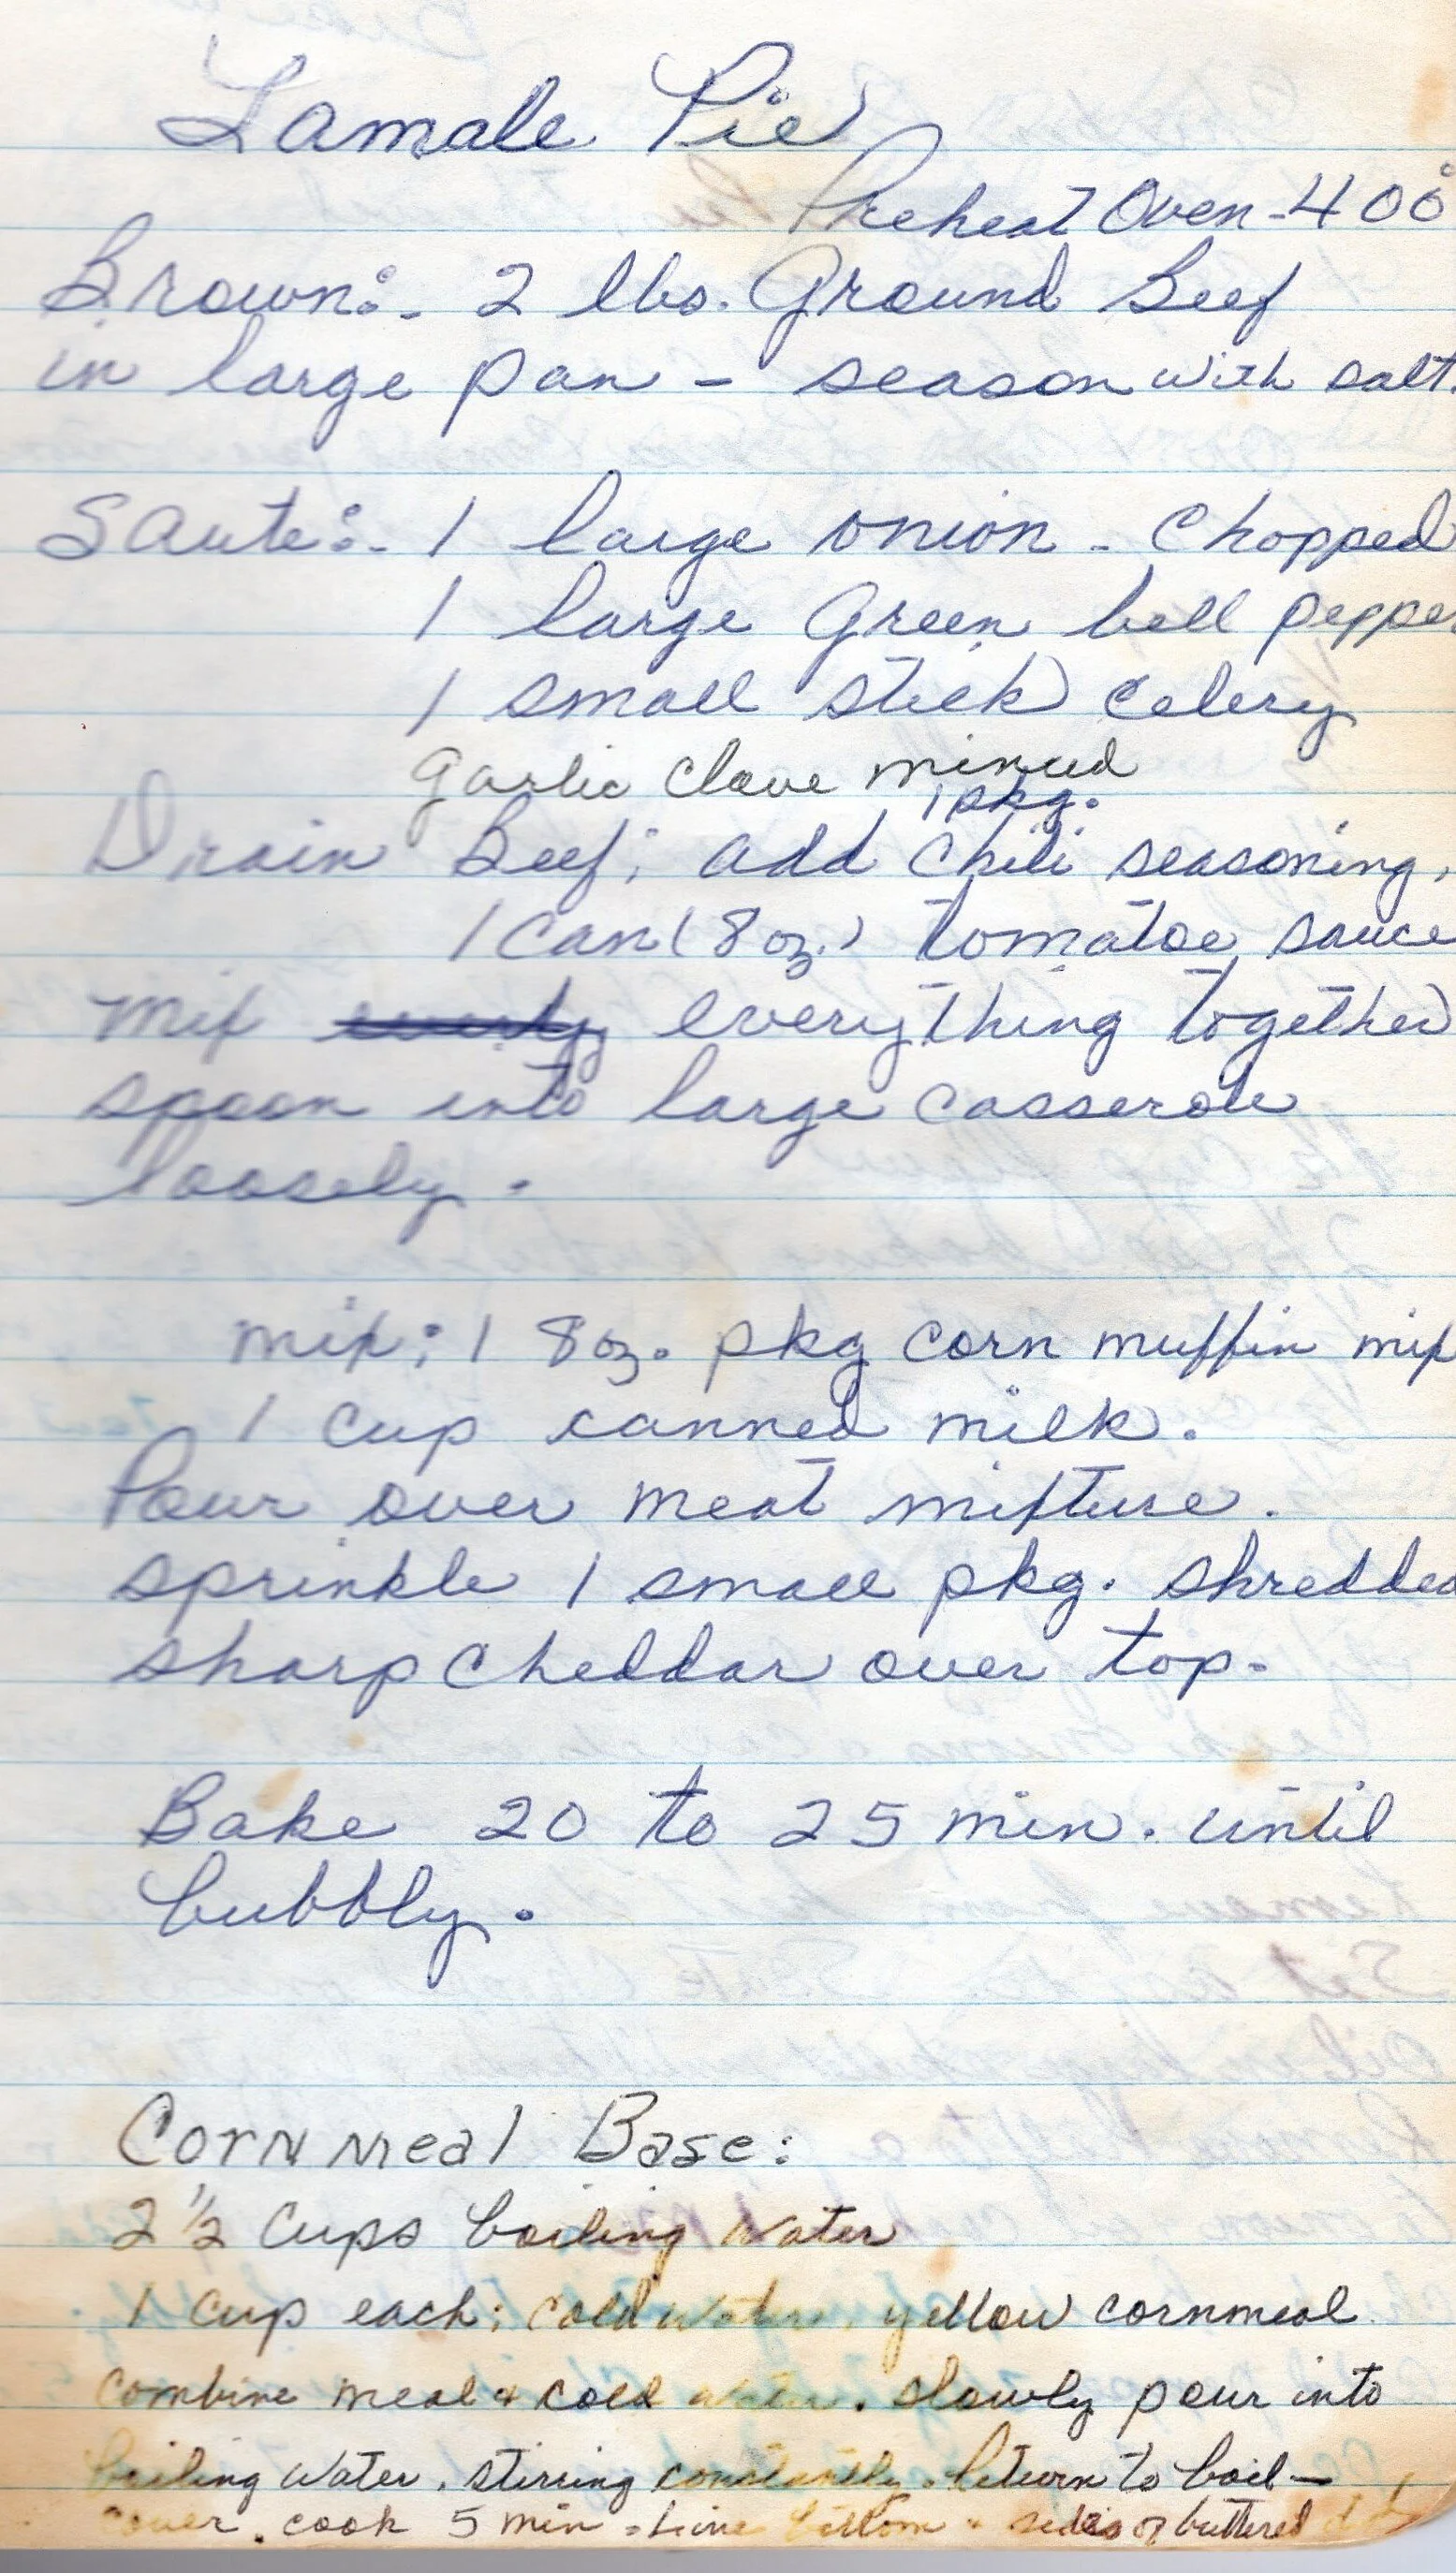 Tamale Pie
Preheat Oven - 400°
Brown:- 2 lbs. Ground Beef
in large pan - season with salt.
Saute:- 1 large onion - Chopped
1 large Green bell pepper
1 small stick celery
Garlic Clove minced
1 pkg.
Drain Beef; add chili seasoning,
1 can (8 oz.) tomatoe sauce
mix everything together
spoon into large casserole
loosely.
mix: 1 8 oz. pkg corn muffin mix
1 cup canned milk.
Pour over meat mixture.
sprinkle 1 small pkg. shredded
sharp cheddar over top.
Bake 20 to 25 min. until
bubbly.
Cornmeal Base:
2 1/2 Cups boiling water
1 cup each: cold water, yellow cornmeal
Combine meal & cold water. slowly pour into
boiling water, stirring constantly. Return to boil -
cover. cook 5 min. Line bottom & sides of buttered